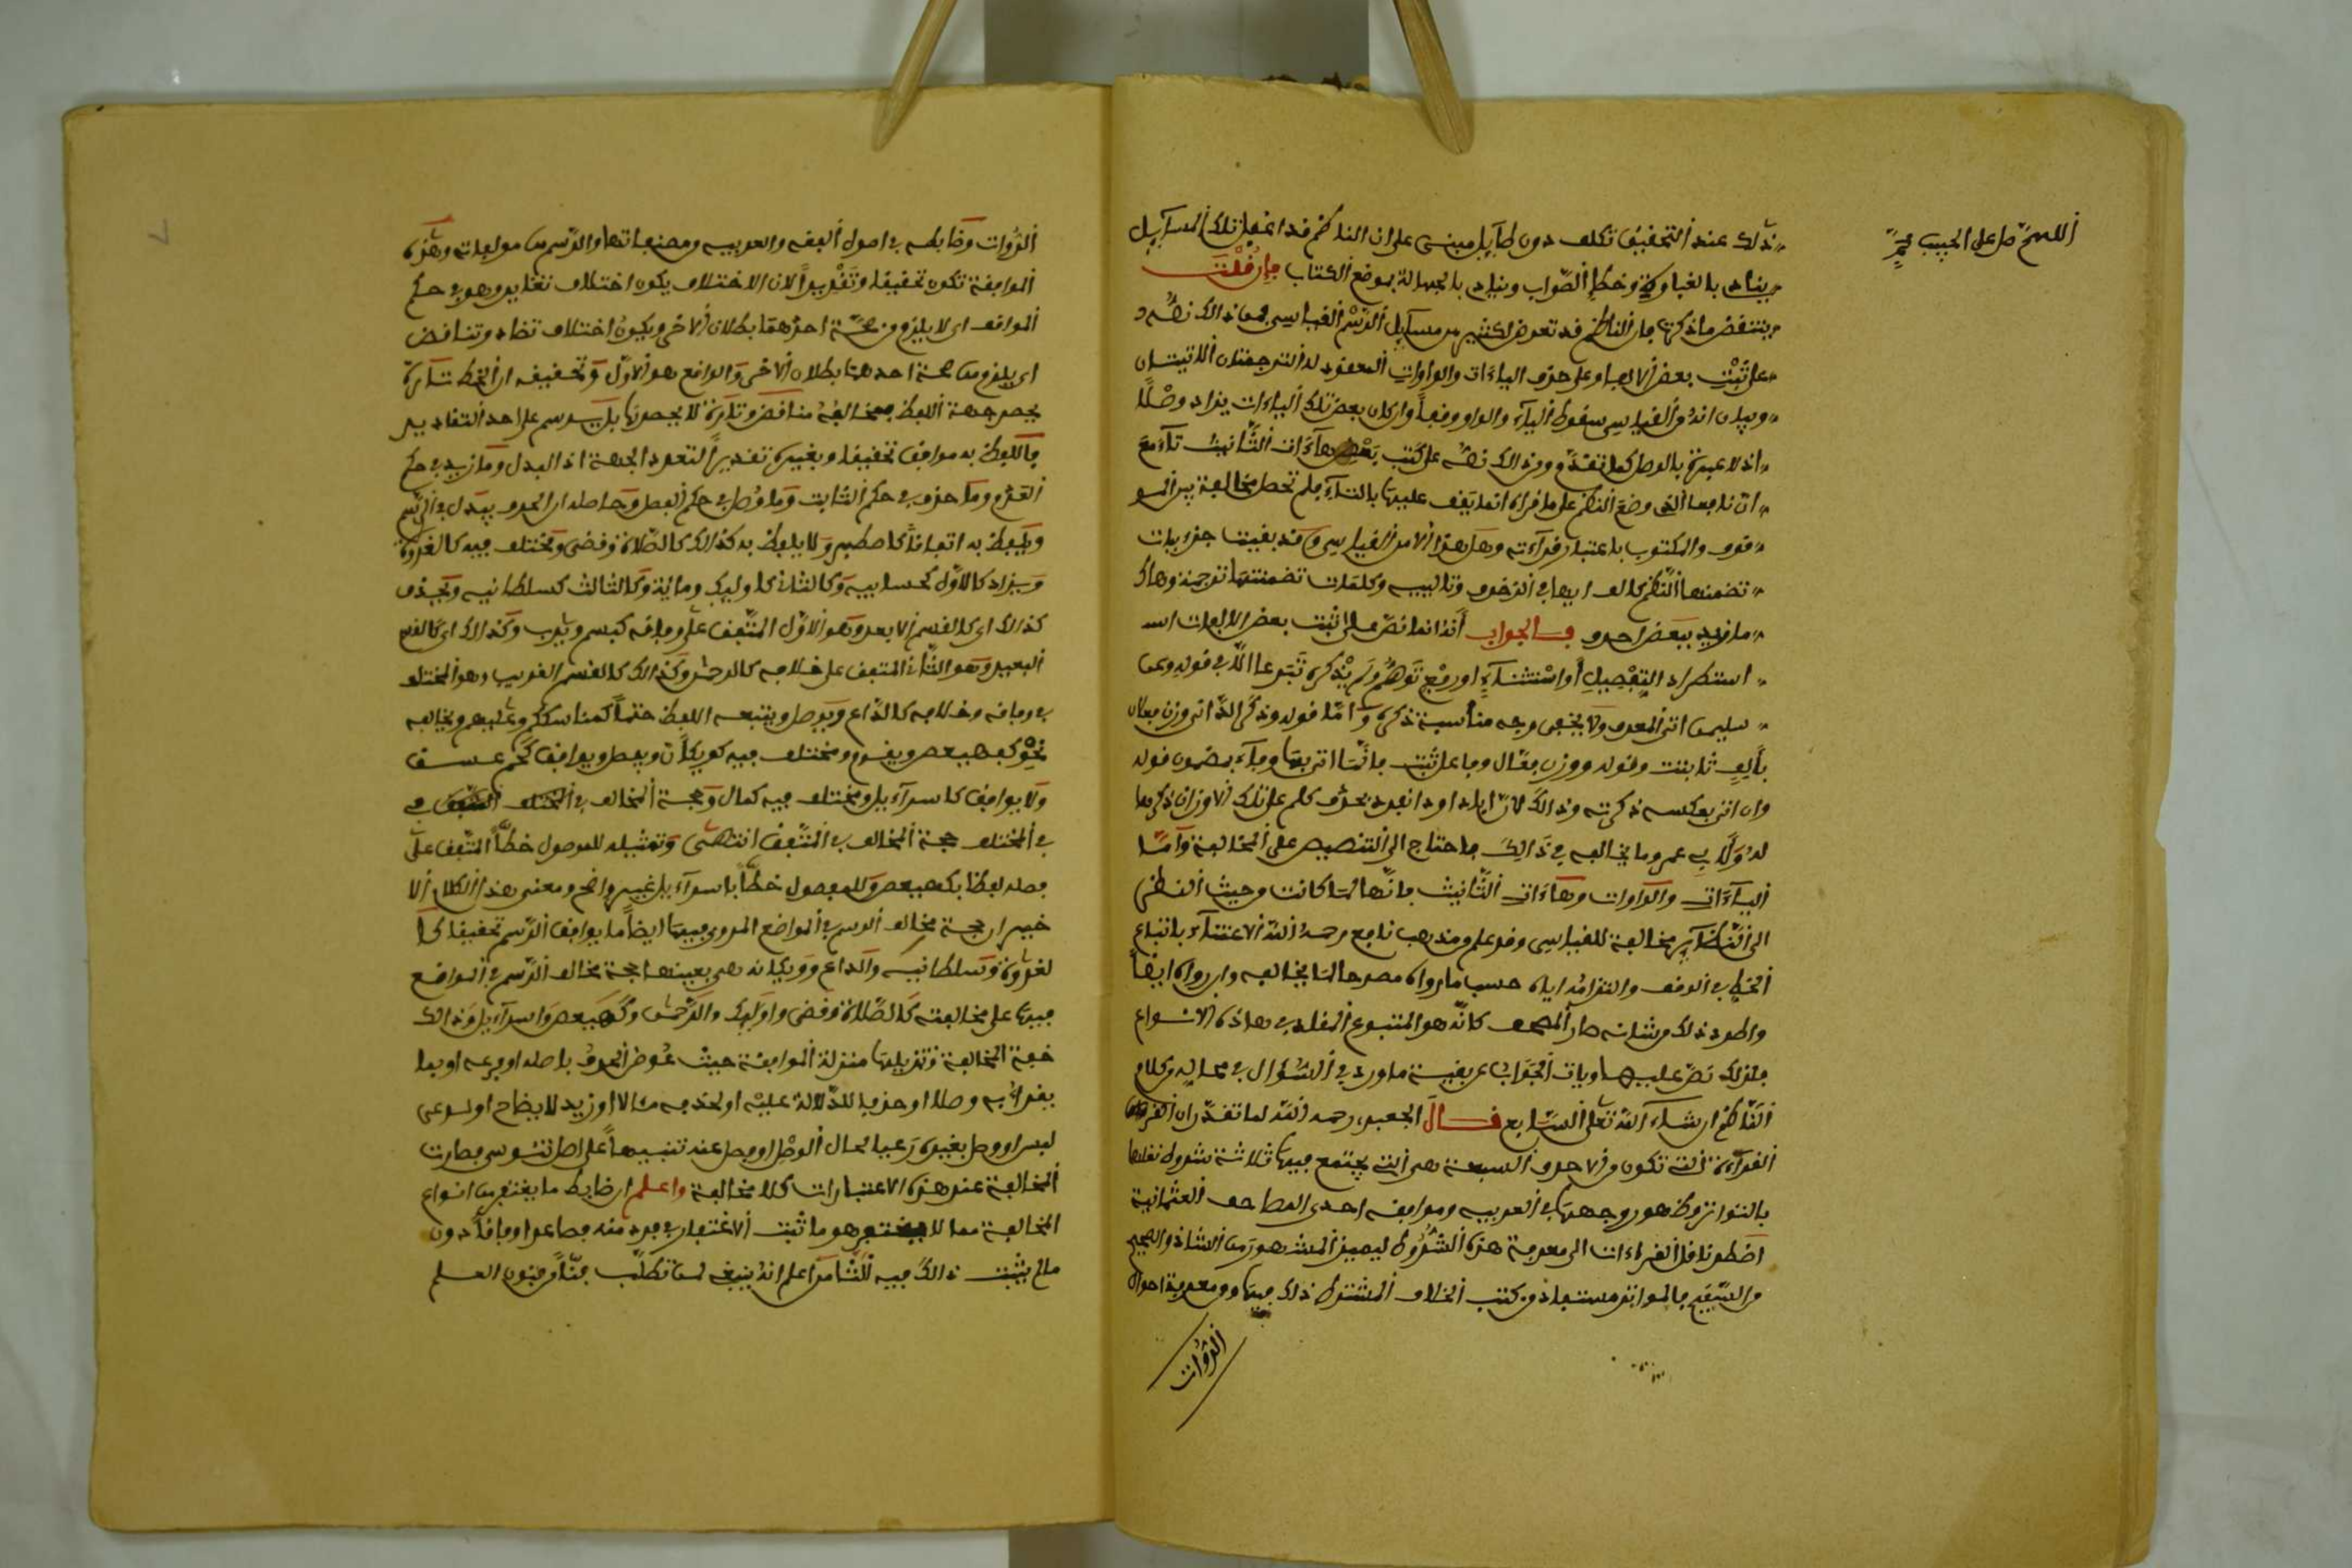 اللهم صل على الحبيب محمد
ذلك عند التحقيق تكلف دون طايل مبني على ان الناظم قد اغفل تلك المسايل
ينادي بالغباوة وخطإ الصواب وينادي بالجهالة بموضع الكتاب فإن قلت
ينتقض ما ذكرتم بان الناظم قد تعرض لكثير من مسايل الرسم القياسي فمن ذالك نصه
على ثبت بعض الالفات وعلى حذف الياءات والواوات المعقود له الترجمتان اللاتيتان
وبيان انه من القياسي سقوط الياء والواو وقفا وان كان بعض تلك الياءات يزاد وصلا
اذ لا عبرة بالوصل كما تقدم ومن ذالك نصه على كتب بعض هاءات التأنيث تاء مع
ان نافعا الذي وضع النظم على ما قرأه انما يقف عليها بالتاء فلم تحصل مخالفة بين المو
قوف والمكتوب باعتبار قراءته وهل هذا الا من القياسي وقد بقيت جزءيات
تضمنها النظم كالف ايها في الزخرف وتاليبه وكلمات تضمنتها ترجمة وهاك
ما زيد ببعض احرف فالجواب أنه انما نص على ثبت بعض الالفات اس
استطراد التفصيل أو استثناء او رفع توهم ولم يذكره تبرعا الا في قوله وعن
سليمن اتى المعرف ولا يخفى وجه مناسبة ذكره وأما قوله وذكر الداني وزن فعال
بألف ثابتت وقوله ووزن فعال وفاعل ثبت فانما اتى بها وفاء بضمون قوله
وان اتى بعكسه ذكرته وذالك لان ابا داود انفرد بحذف كلم على تلك الاوزان ذكرها
له ولأبي عمرو ما يخالفه في ذالك فاحتاج الى التنصيص على المخالفة وأما
الياءات والواوات وهاءات التأنيث فانها لما كانت من حيث النظر
الى النظاير مخالفة للقياسي وقد علم من مذهب نافع رحمه الله الاعتناء باتباع
الخط في الوقف والتزامه اياه حسب ما رواه مصرحا لما يخالفه وان رواه ايضا
واطرد ذلك من شانه صار المصحف كانه هو المتبوع المقلد في هاذه الانواع
فلذلك نص عليها وياتي الجواب عن بقية ما ورد في السؤال في محاله من كلام
الناظم ان شاء الله تعلى السابع قال الجعبري رحمه الله لما تقدر ان القرءان
القرءاة التي تكون من الاحرف السبعة هي التي يجتمع فيها ثلاثة شروط نقلها
بالتواتر وظهور وجهها في العربية وموافقة احدى المصاحف العثمانية
اضطر ناقل القراءات الى معرفة هذه الشروط ليميز المشهور من الشاذ والصحيح
من السقيم فالمتواتر مستفاد من كتب الخلاف المشترط ذلك فيها ومن معرفة احوال
الرواة
الرواة وضابطه في اصول الفقه والعربية ومصنفاتها والرسم من مولفاته وهذه
الموافقة تكون تحقيقا وتقديرا لان الاختلاف يكون اختلاف تغاير وهو في حكم
الموافق اي لا يلزم من صحة احدهما بطلان الاخر ويكون اختلاف تضاد وتناقض
اي يلزم من صحة احدهما بطلان الاخر والواقع هو الاول وتحقيقه ان الخط تارة
يحصر جهة اللفظ فمخالفه مناقض وتارة لا يحصرها بل يرسم على احد التقادير
فاللفظ به موافق تحقيقا وبغيره تقديرا لتعدد الجهة اذ البدل وما زيد في حكم
العدم وما حذف في حكم الثابت وما وصل في حكم الفصل وحاصله ان الحرف يبدل في الرسم
ويلفظ به اتفاقا كاصطبر ولا يلفظ به كذالك كالصلاة وقضى ويختلف فيه كالغدوة
ويزاد كالاول كحسابيه وكالثاني كاوليك ومائة وكالثالث كسلطانيه ويحذف
كذالك اي كالقسم الابعد وهو الاول المتفق على وفاقه كبسم ويرب وكذالك اي كالقسم
البعيد وهو الثاني المتفق على خلافه كالرحمن وكذالك كالقسم القريب وهو المختلف
في وفاقه وخلافه كالداع ويوصل ويتبعه اللفظ حتما كمناسككم وعليهم ويخالفه
نحو كهيعص ويبنؤم ومختلف فيه كويكأن ويفصل ويوافق كحم عسق
ولا يوافق كاسراءيل ومختلف فيه كمال وحجة المخالف في المختلف
في المختلف حجة المخالف في المتفق انتهى وتمثيله للموصول خطا المتفق على
فصله لفظا بكهيعص وللمفصول خطا باسراءيل غير واضح ومعنى هذا الكلام الا
خير ان حجة مخالف الرسم في المواضع المروي فيها ايضا ما يوافق الرسم تحقيقا كا
لغدوة وسلطانيه والداع وويكانه هي بعينها حجة مخالف الرسم في المواضع
فيها على مخالفته كالصلاة وقضى واوليك والرحمن وكهيعص واسراءيل وذالك
خفة المخالفة وتنزيلها منزلة الموافقة حيث عوض الحرف باصله او فرعه او بما
يقرأ به وصلا او حذف للدلالة عليه او لخذفه مثالا او زيد لايضاح او لمدعى
لبس او وصل بغيره رعيا لحال الوصل او فصل عنه تنبيها على اصل تنوسي فصارت
المخالفة عند هذه الاعتبارات كلا مخالفة واعلم ان ضابط ما يغتفر من انواع
المخالفة مما لا يغتفر هو ما ثبت الاغتفار في فرد منه فصاعدا وفاقا دون
ما لم يثبت ذالك فيه الثامن اعلم انه ينبغي لمن تطلب فنا من فنون العلم